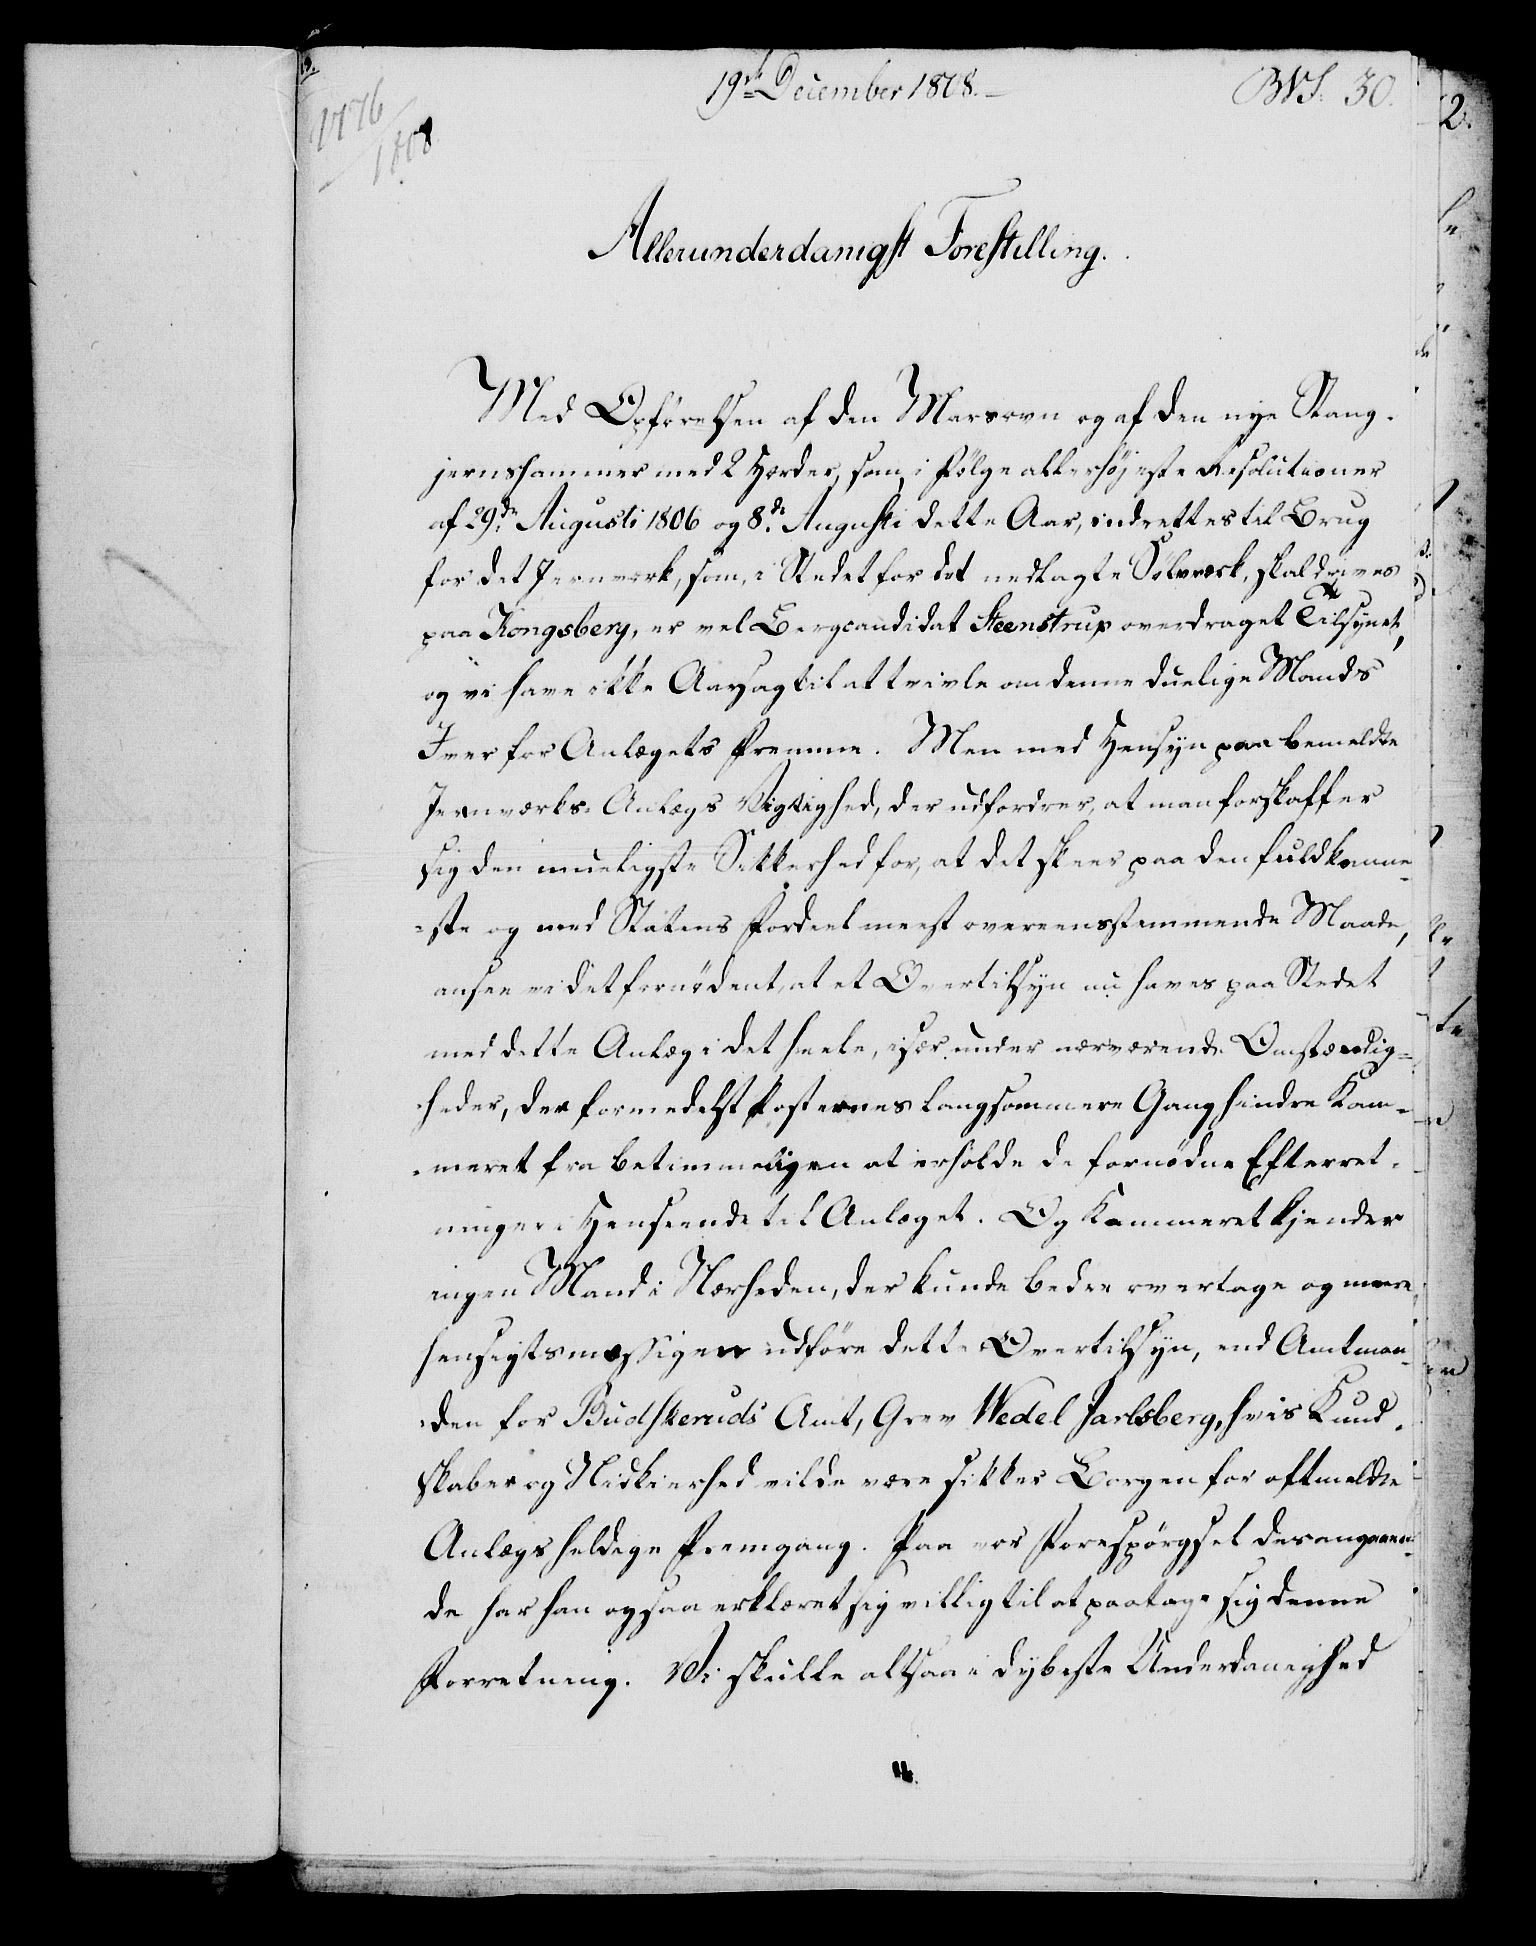 19de December 1808.
BVS: 30.
1776
1808
Allerunderdanigst Forestilling.
Med Opförelsen af den Masovn og af den nye Stang-
jernshammer med 2 Herder, som, i Fölge allerhöjeste Resolutioner
af 29de Augusti 1806 og 8de Augusti dette Aar, indrettes til Brug
for det Jernværk, som, i Stedet for det nedlagte Sölvværk, skal drives
paa Kongsberg, er vel Bergcandidat Steenstrup overdraget Tilsynet,
og vi have ikke Aarsag til at tvivle om denne duelige Mands
Iver for Anlægets Fremme. Men med Hensyn paa bemeldte
Jernværks-Anlægs Vigtighed, der udfordrer, at man forskaffer
sig den mueligste Sikkerhed for, at det skeer paa den fuldkomne-
-ste og med Statens Fordeel meest overeensstemmende Maade,
ansee vi det fornödent, at et Overtilsyn nu haves paa Stedet
med dette Anlæg i det heele, især under nærværende Omstændig-
-heder, der formedelst Posternes langsommere Gang hindre Kam-
-meret fra betimeligen at erholde de fornödne Efterret-
ninger i Henseende til Anlæget. Og Kammeret kjender
ingen Mand i Nærheden, der kunde bedre overtage og mere
hensigtsmæssigen udföre dette Overtilsyn, end Amtman-
-den for Budskeruds Amt, Grev Wedel Jarlsberg, hvis Kund-
skaber og Nidkierhed vilde være sikker Borgen for oftmeldte
Anlægs heldige Fremgang. Paa vor Forespörgsel derangaaen-
de har han ogsaa erklæret sig villig til at paatage sig denne
Forretning. Vi skulle altsaa i dybeste Underdanighed